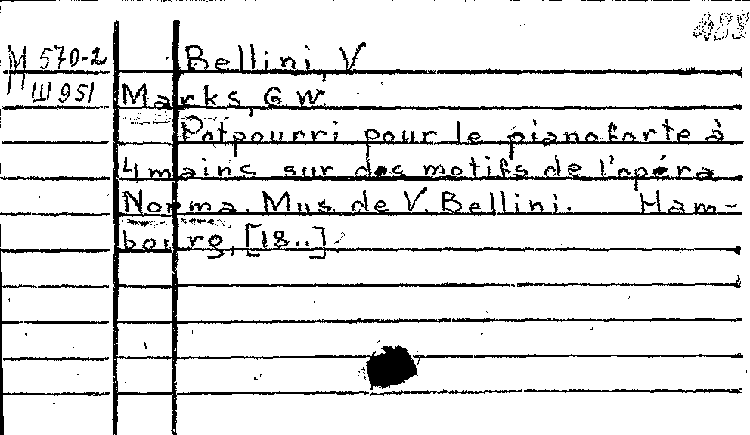 488
M 570-2
Ш 951
Bellini, V
Marks, G W
Potpourri pour le pianoforte à
4 mains sur des motifs de l'opéra
Norma. Mus. de V. Bellini. Ham-
bourg, [18..]